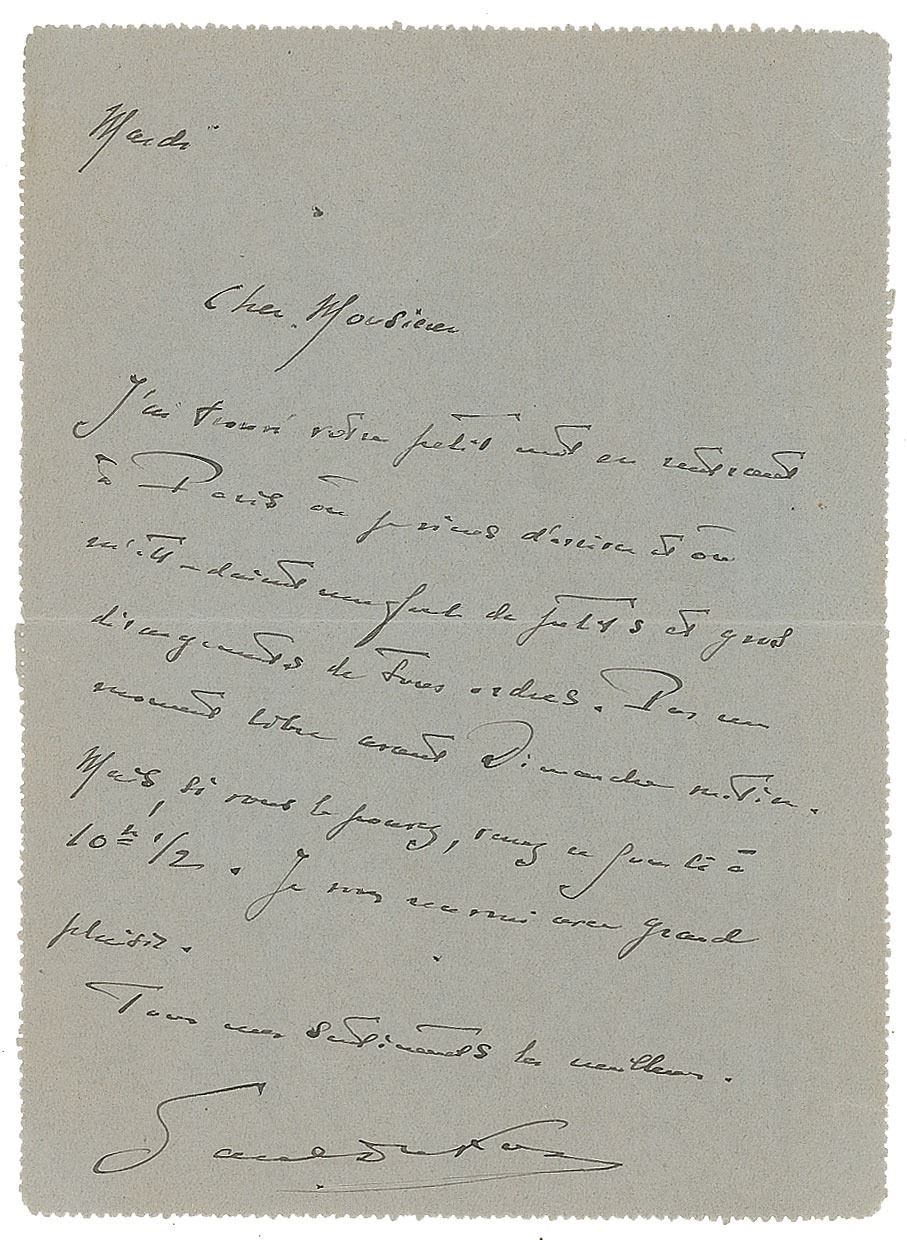 Mardi
Cher Monsieur
J'ai trouvé votre petit mot en rentrant
à Paris où je viens d'arriver et où
m'attendaient une foule de petits et gros
dérangements de tous ordres. Pas un
moment libre avant Dimanche matin.
Mais, si vous le pouvez, venez ce jour là à
10h 1/2. Je vous recevrai avec grand
plaisir.
Tous mes sentiments les meilleurs.
Paul Dukas